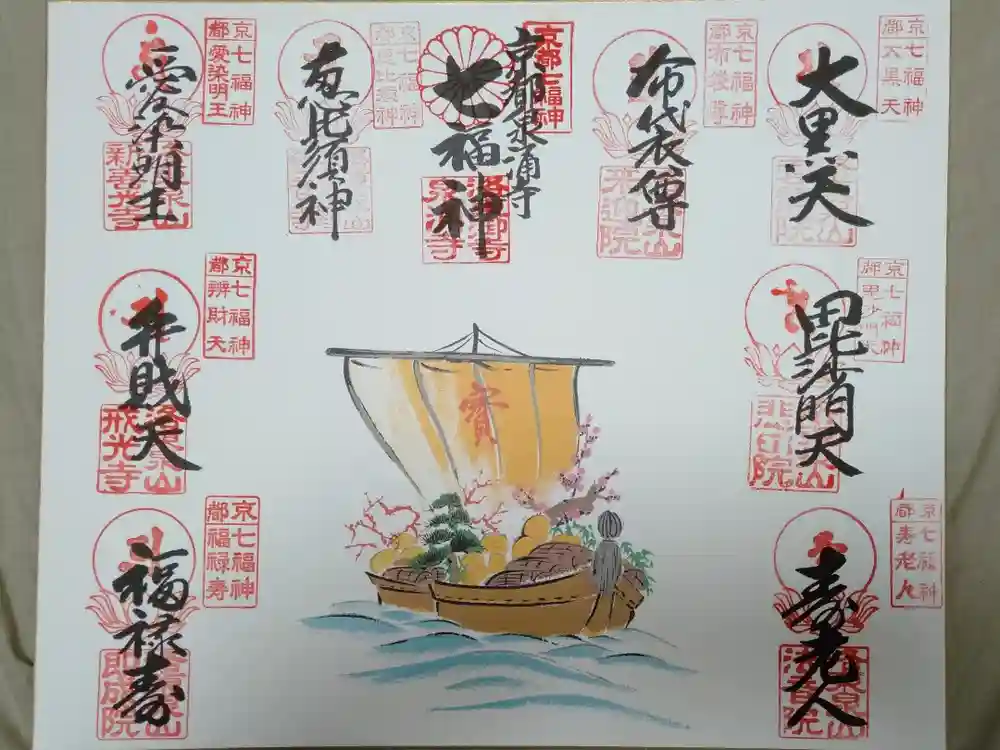 京七福神
都大黒天
大黒天
京七福神
都布袋尊
布袋尊
来迎院
京都七福神
京都泉涌寺
七福神
泉涌寺
京七福神
都恵比須神
恵比須神
京七福神
都愛染明王
愛染明王
新善光寺
京七福神
都毘沙門天
毘沙門天
悲田院
寳
京七福神
都辨財天
弁財天
洛東泉山
戒光寺
京七福神
都寿老人
寿老人
法音院
京七福神
都福禄寿
福禄寿
即成院